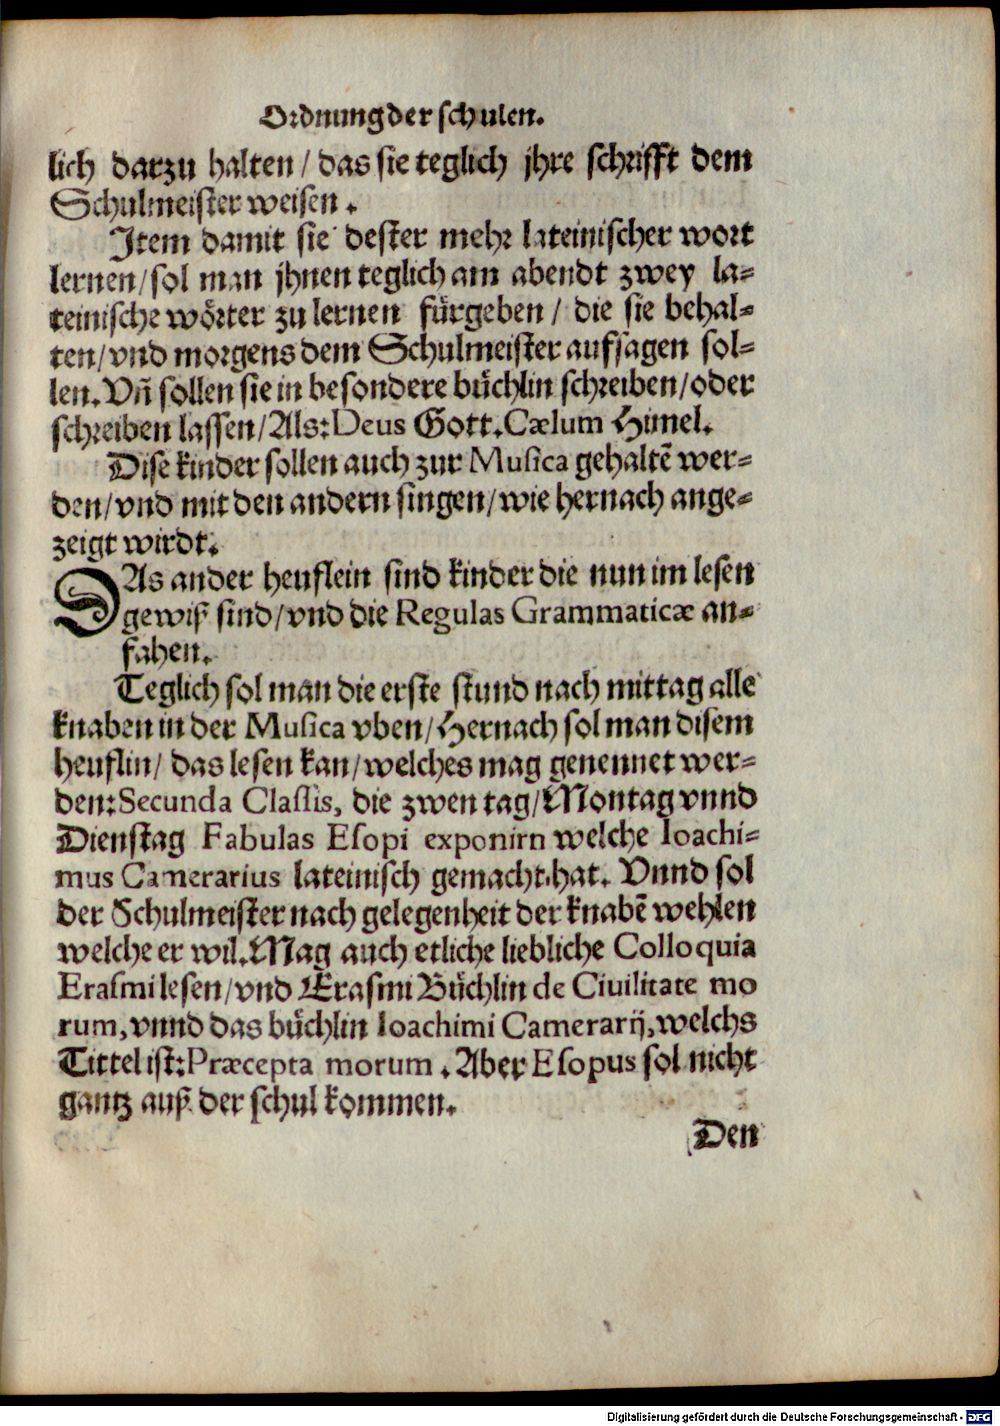 Ordnung der schulen.
lich darzu halten / das sie teglich jhre schrifft dem
Schulmeister weisen.
Item damit sie dester mehr lateinischer wort
lernen/sol man jhnen teglich am abendt zwey la-
teinische wörter zu lernen fürgeben / die sie behal-
ten/vnd morgens dem Schulmeister auffsagen sol-
len. Vñ sollen sie in besondere büchlin schreiben/oder
schreiben lassen/Als: Deus Gott. Cælum Himel.
Dise kinder sollen auch zur Musica gehaltẽ wer-
den/vnd mit den andern singen/wie hernach ange-
zeigt wirdt.
DAs ander heuflein sind kinder die nun im lesen
gewiß sind/vnd die Regulas Grammaticæ an-
fahen.
Teglich sol man die erste stund nach mittag alle
knaben in der Musica vben/Hernach sol man disem
heuflin/ das lesen kan/welches mag genennet wer-
den: Secunda Classis, die zwen tag/Montag vnnd
Dienstag Fabulas Esopi exponirn welche Ioachi-
mus Camerarius lateinisch gemacht hat. Vnnd sol
der Schulmeister nach gelegenheit der knabẽ wehlen
welche er wil. Mag auch etliche liebliche Colloquia
Erasmi lesen/vnd Erasmi Büchlin de Ciuilitate mo
rum, vnnd das büchlin Ioachimi Camerarij, welchs
Tittel ist: Præcepta morum. Aber Esopus sol nicht
gantz auß der schul kommen.
Den
Digitalisierung gefördert durch die Deutsche Forschungsgemeinschaft - DFG